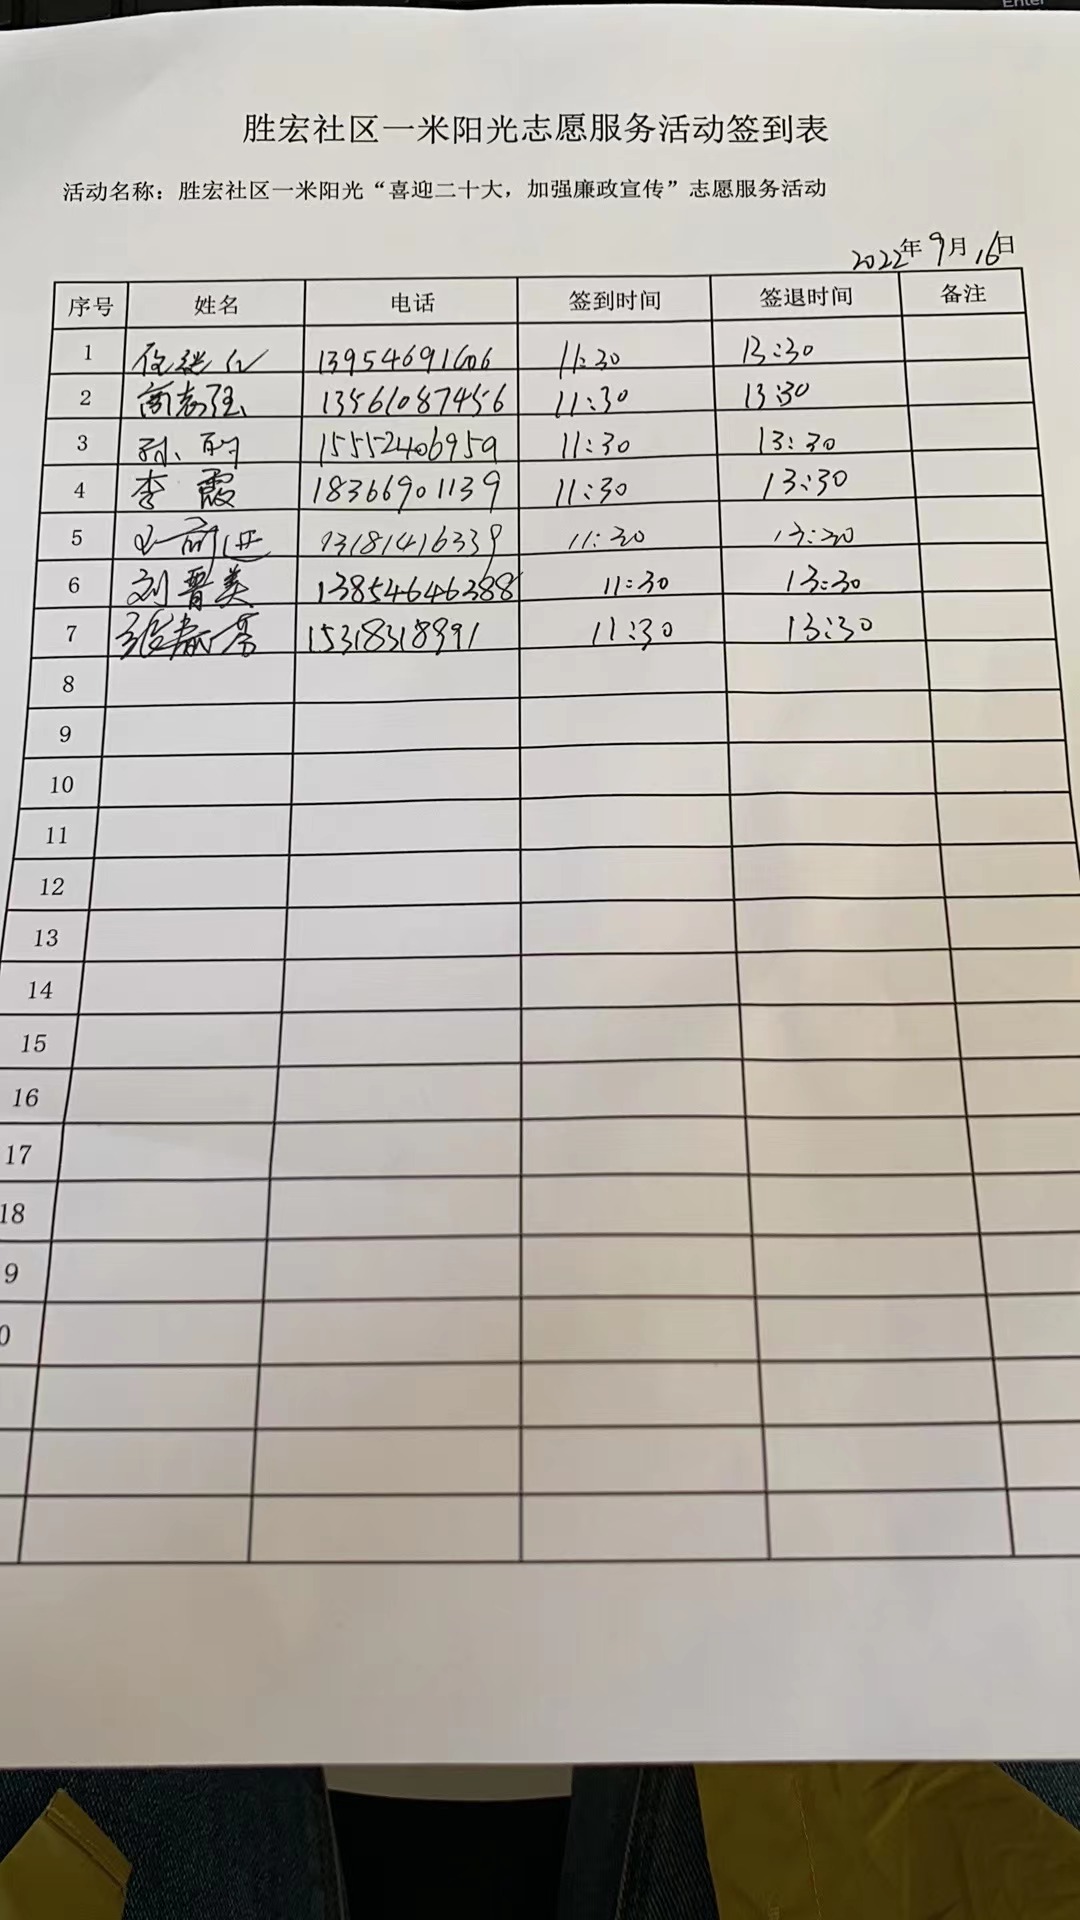 Enter
胜宏社区一米阳光志愿服务活动签到表
活动名称：胜宏社区一米阳光“喜迎二十大，加强廉政宣传”志愿服务活动
2022年9月16日
序号 姓名 电话 签到时间 签退时间 备注
1 13954691606 11:30 13:30
2 13561087456 11:30 13:30
3 孙 15552406959 11:30 13:30
4 李霞 18366901139 11:30 13:30
5 前进 13181416339 11:30 13:30
6 刘晋美 13854646388 11:30 13:30
7 张 15318318991 11:30 13:30
8
9
10
11
12
13
14
15
16
17
18
9
0